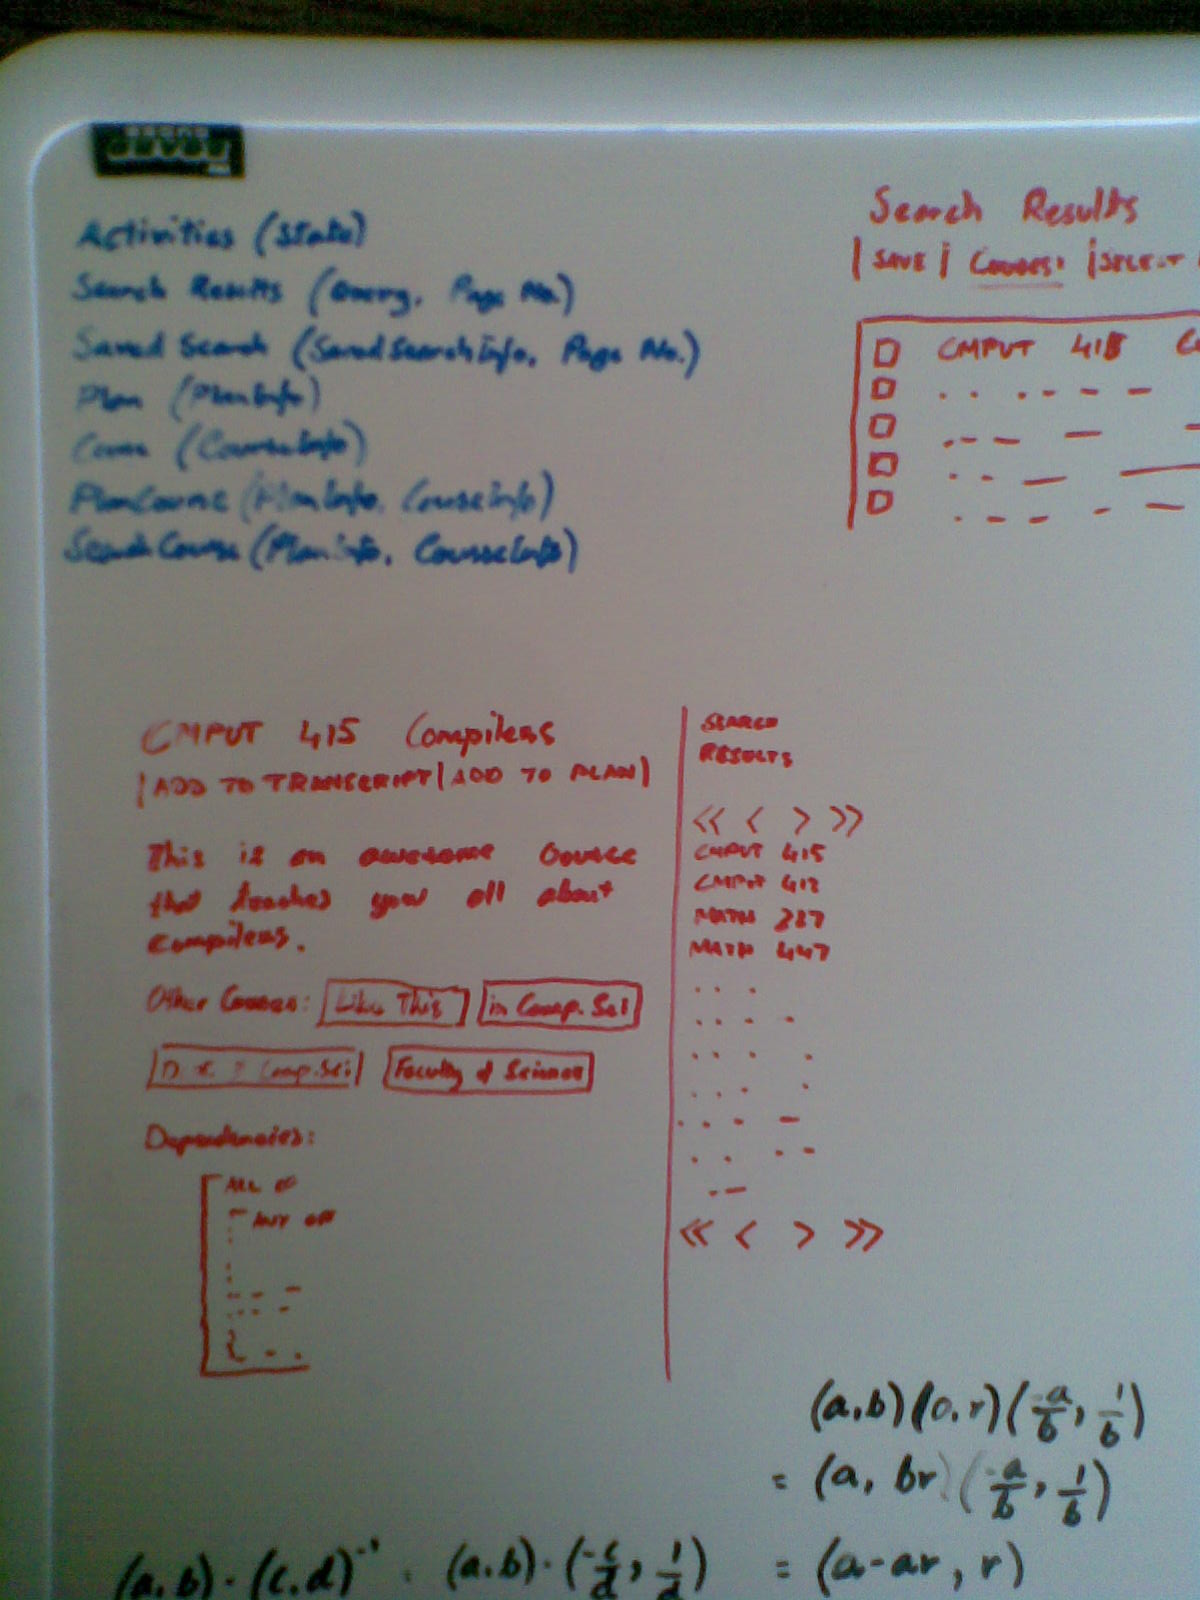 Activities (State)
Search Results (Query, Page No.)
Saved Search (SavedSearchInfo, Page No.)
Plan (PlanInfo)
Course (CourseInfo)
PlanCourse (PlanInfo, CourseInfo)
SearchCourse (PlanInfo, CourseInfo)
Search Results
| SAVE | COURSES: | SELECT
CMPUT 415
CMPUT 415 Compilers
| ADD TO TRANSCRIPT | ADD TO PLAN |
This is an awesome course
that teaches you all about
compilers.
Other Courses: Like This in Comp. Sci
Comp. Sci Faculty of Science
Dependencies:
ALL OF
ANY OF
SEARCH
RESULTS
<< < > >>
CMPUT 415
CMPUT
MATH
MATH 447
<< < > >>
(a,b)(0,r)(-a/b, 1/b)
= (a, br)(-a/b, 1/b)
(a,b)·(c,d)⁻¹ = (a,b)·(-c/d, 1/d) = (a-ar, r)